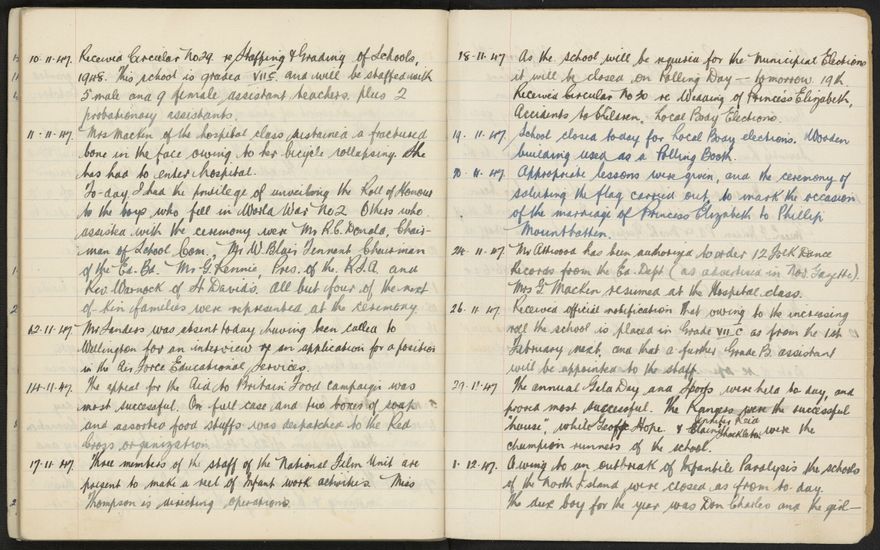 10.11.47. Received Circular No 29 re Staffing & Grading of Schools,
1948. This school is graded VIIC and will be staffed with
5 male and 9 female assistant teachers plus 2
probationary assistants.
11.11.47. Mrs Macken of the hospital class sustained a fractured
bone in the face owing to her bicycle collapsing. She
has had to enter hospital.
To-day I had the privilege of unveiling the Roll of Honour
to the boys who fell in World War No 2. Others who
assisted with the ceremony were Mr R.C. Donald, Chair-
man of School Com., Mr W. Blair Tennant Chairman
of the Ed. Bd. Mr G. Rennie, Pres. of the R.S.A. and
Rev. Warnock of St Davids. All but four of the next
of-kin families were represented at the ceremony.
12.11.47 Mr Sanders was absent today having been called to
Wellington for an interview re an application for a position
in the Air Force Educational Services.
14.11.47. The appeal for the Aid to Britain Food campaign was
most successful. On full case and two boxes of soap
and assorted food stuffs was despatched to the Red
Cross organization
17.11.47. Three members of the staff of the National Film Unit are
present to make a reel of Infant work activities. Miss
Thompson is directing operations.
18.11.47 As the school will be required for the Municipal Elections
it will be closed on Polling Day — tomorrow 19th
Received Circular No 30 re Wedding of Princess Elizabeth,
Accidents to Children, Local Body Elections.
19.11.47. School closed today for Local Body elections. Wooden
building used as a Polling Booth.
20.11.47. Appropriate lessons were given, and the ceremony of
saluting the flag carried out, to mark the occasion
of the marriage of Princess Elizabeth to Phillip
Mountbatten.
24.11.47 Mr Attwood has been authorized to order 12 Folk Dance
Records from the Ed. Dept (as advertised in Nov. Gazette).
Mrs G. Macken resumed at the Hospital class.
26.11.47. Received official notification that owing to the increasing
roll the school is placed in Grade VIIC as from the 1st
February next, and that a further Grade B assistant
will be appointed to the staff.
29.11.47 The annual Gala Day and Sports were held to day, and
proved most successful. The Rangers were the successful
"house", while Geoff Hope & Jennifer Reid
Shackleton were the
champion runners of the school.
1.12.47. Owing to an outbreak of Infantile Paralysis the schools
of the North Island were closed as from to-day.
The dux boy for the year was Don Charles and the girl—